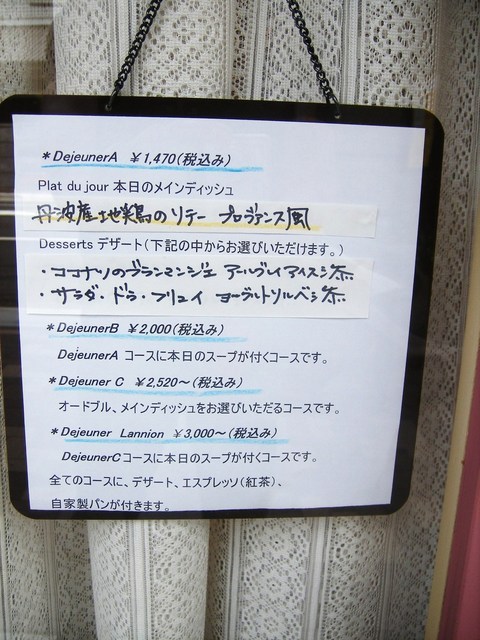 *DejeunerA ￥1,470(税込み)
Plat du jour 本日のメインディッシュ
丹波産地鶏のソテー プロヴァンス風
Desserts デザート(下記の中からお選びいただけます。)
・ココナツのブランマンジェ アールグレイアイス添
・サラダ・ドゥ・フリュイ ヨーグルトソルベ添
*DejeunerB ￥2,000(税込み)
DejeunerA コースに本日のスープが付くコースです。
*Dejeuner C ￥2,520～(税込み)
オードブル、メインディッシュをお選びいただるコースです。
*Dejeuner Lannion ￥3,000～(税込み)
DejeunerCコースに本日のスープが付くコースです。
全てのコースに、デザート、エスプレッソ(紅茶)、
自家製パンが付きます。